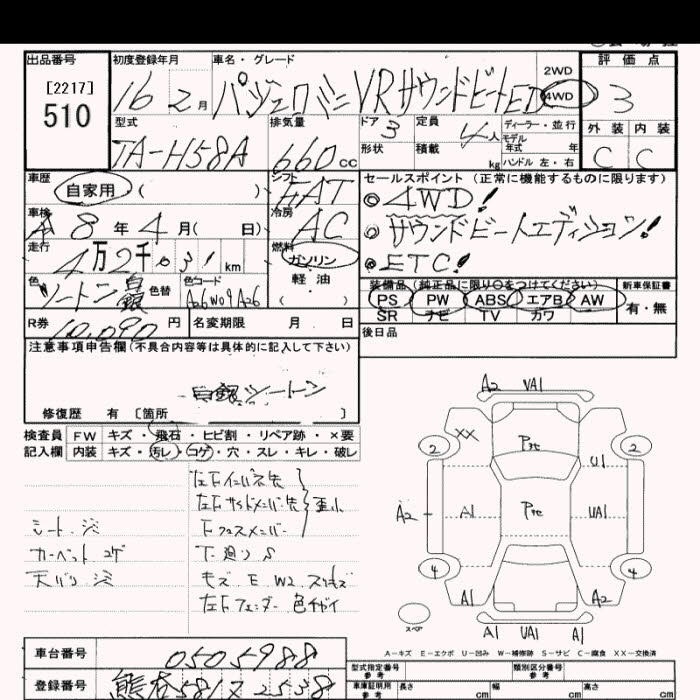 出品番号 初度登録年月 車名・グレード 2WD 評価点
[2217]
510 16 2月 パジェロミニ VR サウンドビートED 4WD 3
型式 排気量 ドア 定員 ディーラー・並行 外装 内装
TA-H58A 660cc 3 4人 モデル年式 年 C C
形状 積載 kg ハンドル 左・右
車歴 シフト セールスポイント (正常に機能するものに限ります)
自家用 ( ) FAT ◎ 4WD!
車検 冷房 ◎ サウンドビートエディション!
8年 4月( 日) AC ◎ ETC!
走行 燃料
4万2千031km ガソリン
軽油
色 色替 色コード 装備品(純正品に限り○をつけてください) 新車保証書
ツートン A26W09A26 PS PW ABS エアB AW 有・無
SR ナビ TV カワ
R券 10,090円 名変期限 月 日 後日品
注意事項申告欄(不具合内容等は具体的に記入して下さい)
白銀ツートン
修復歴 有 [箇所 ]
検査員 FW キズ・飛石・ヒビ割・リペア跡・×要
記入欄 内装 キズ・汚レ・コゲ・穴・スレ・キレ・破レ
左Fインパネ先
左Fサイドメンバー先
シート.ジ Fクロスメンバー
カーペット コゲ 下廻りS
天バリ ジ キズ E W2
左Fフェンダー 色チガイ
A2 VA1
XX
2 2
U1
A2 A1 UA1
4 4
A1 A2
スペア
A1 UA1 A1
A-キズ E-エクボ U-凹み W-補修跡 S-サビ C-腐食 XX-交換済
車台番号 0505988 型式指定番号 参考 類別区分番号 参考
登録番号 熊本581ス2538 車庫証明用 参考 長さ cm 幅 cm 高さ cm